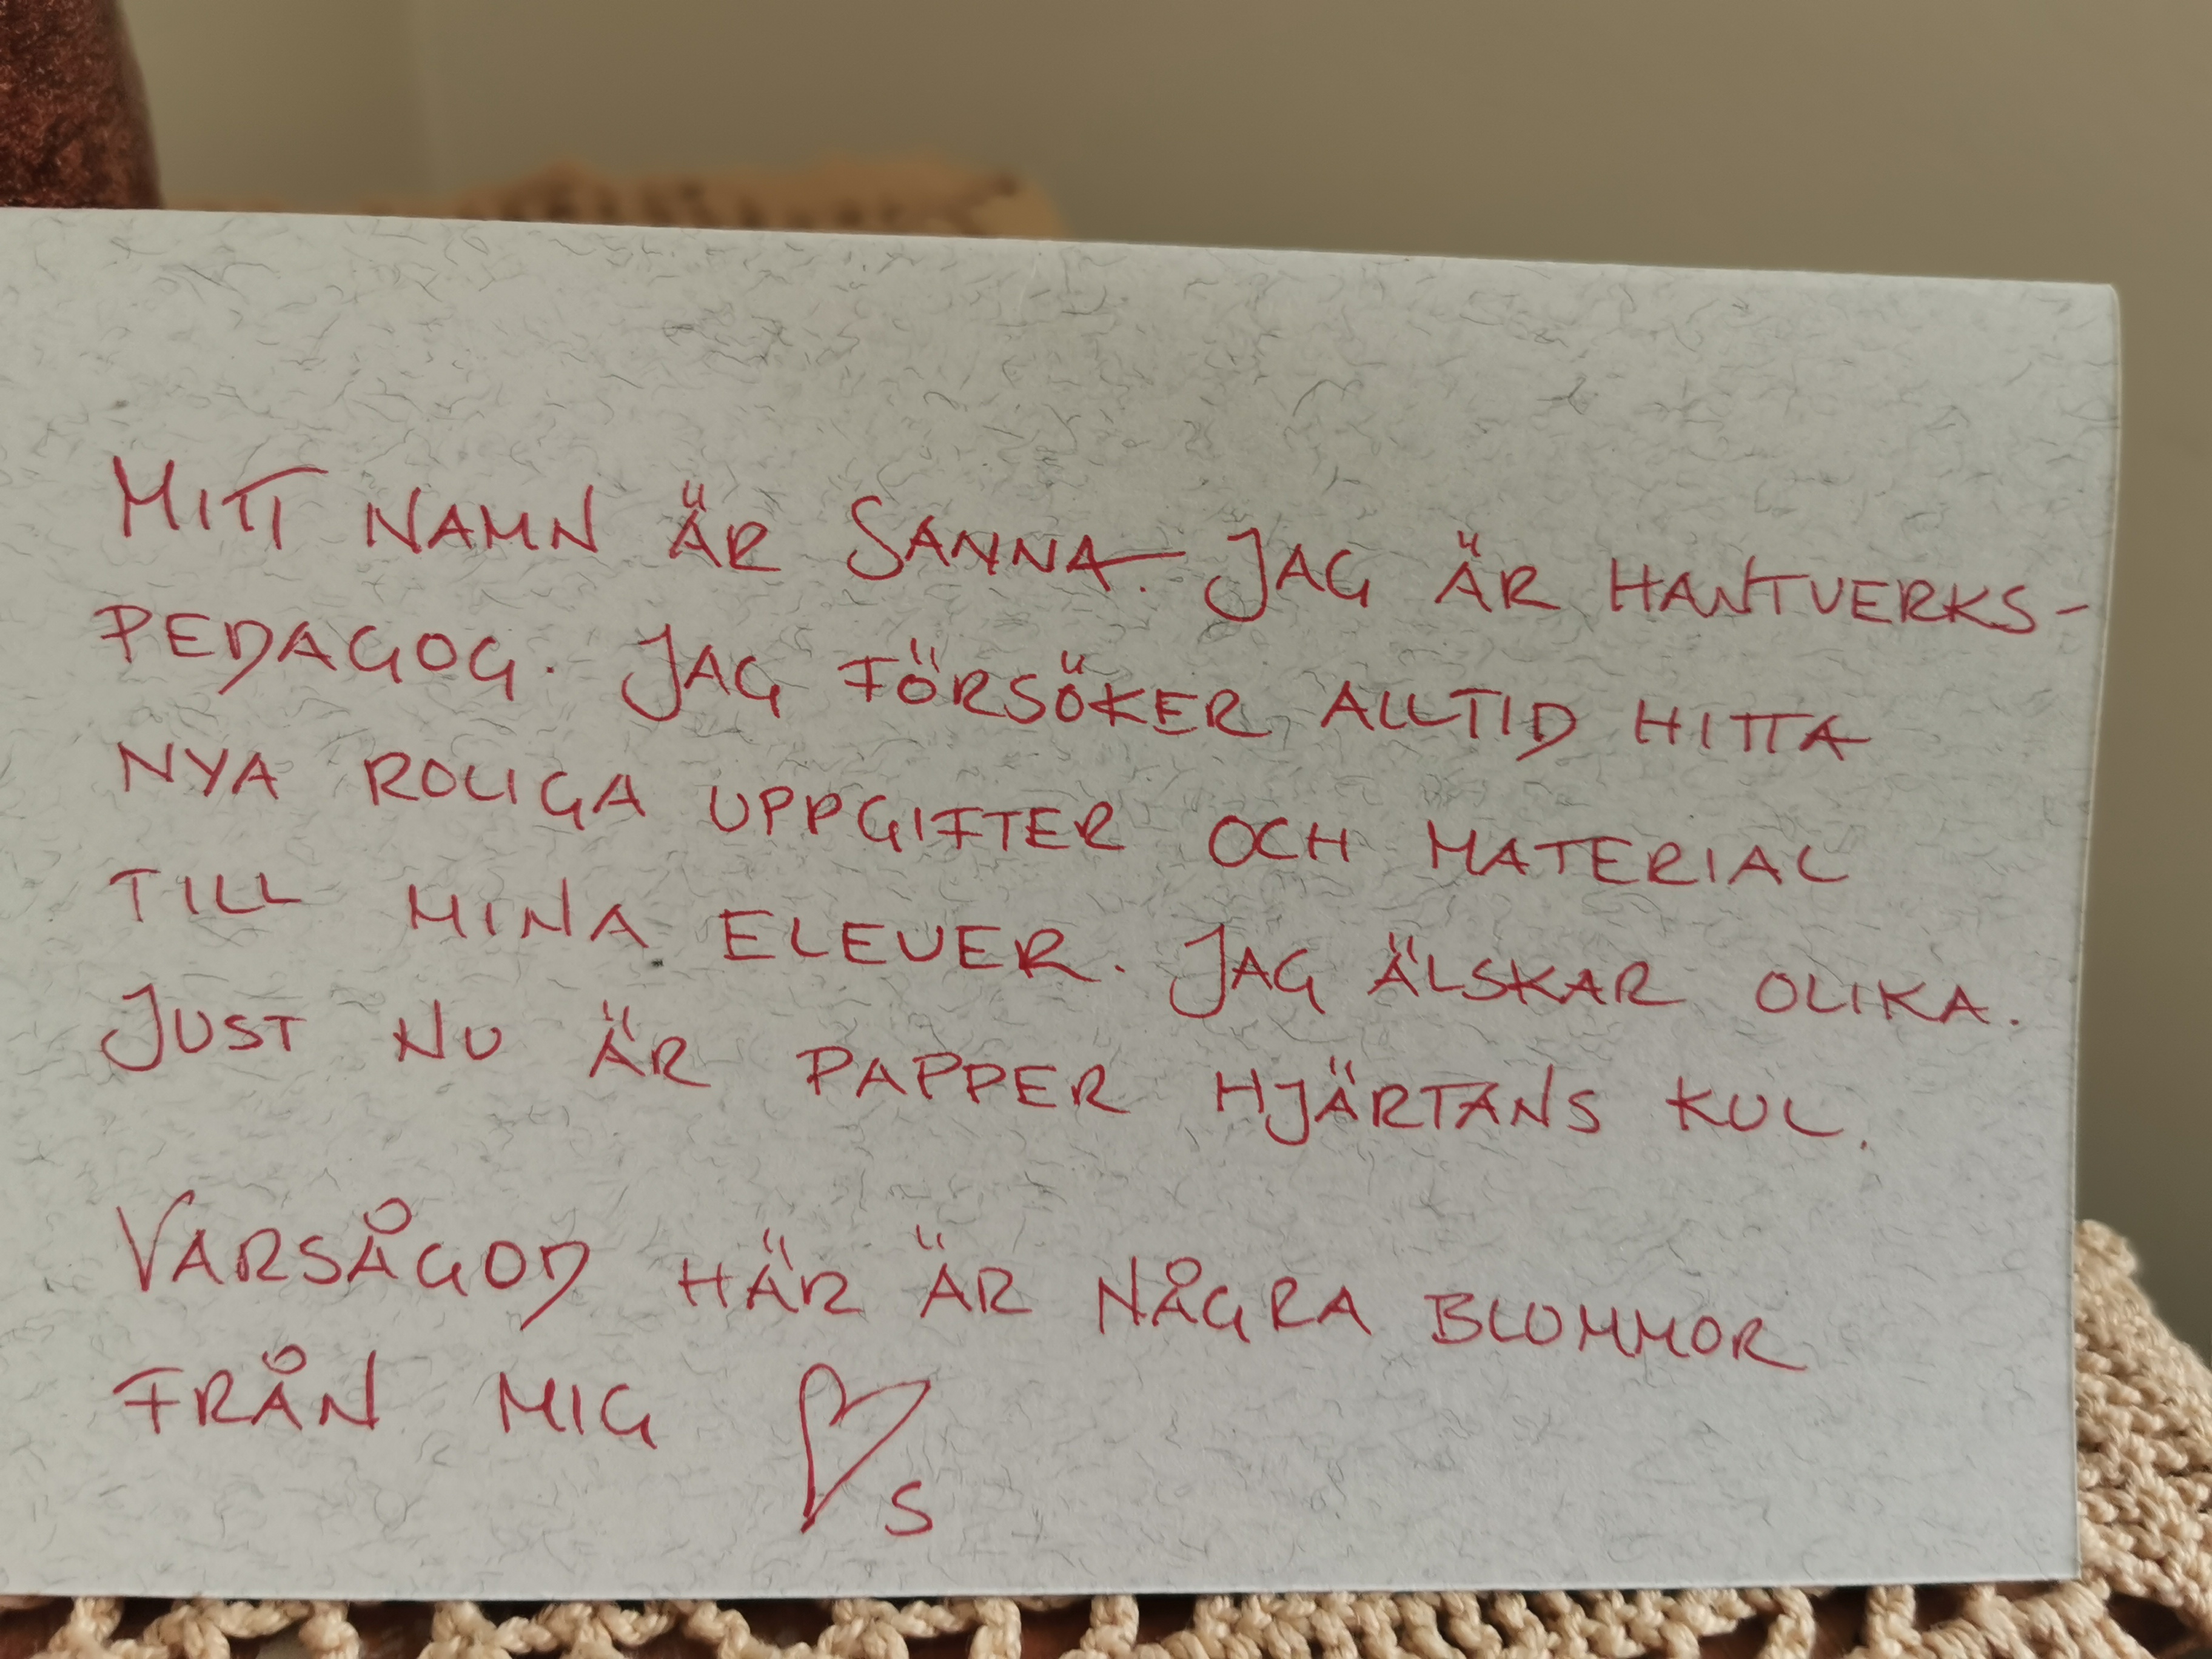 MITT NAMN ÄR SANNA. JAG ÄR HANTVERKS-
PEDAGOG. JAG FÖRSÖKER ALLTID HITTA
NYA ROLIGA UPPGIFTER OCH MATERIAL
TILL MINA ELEVER. JAG ÄLSKAR OLIKA.
JUST NU ÄR PAPPER HJÄRTANS KUL.
VARSÅGOD HÄR ÄR NÅGRA BLOMMOR
FRÅN MIG ♡
S